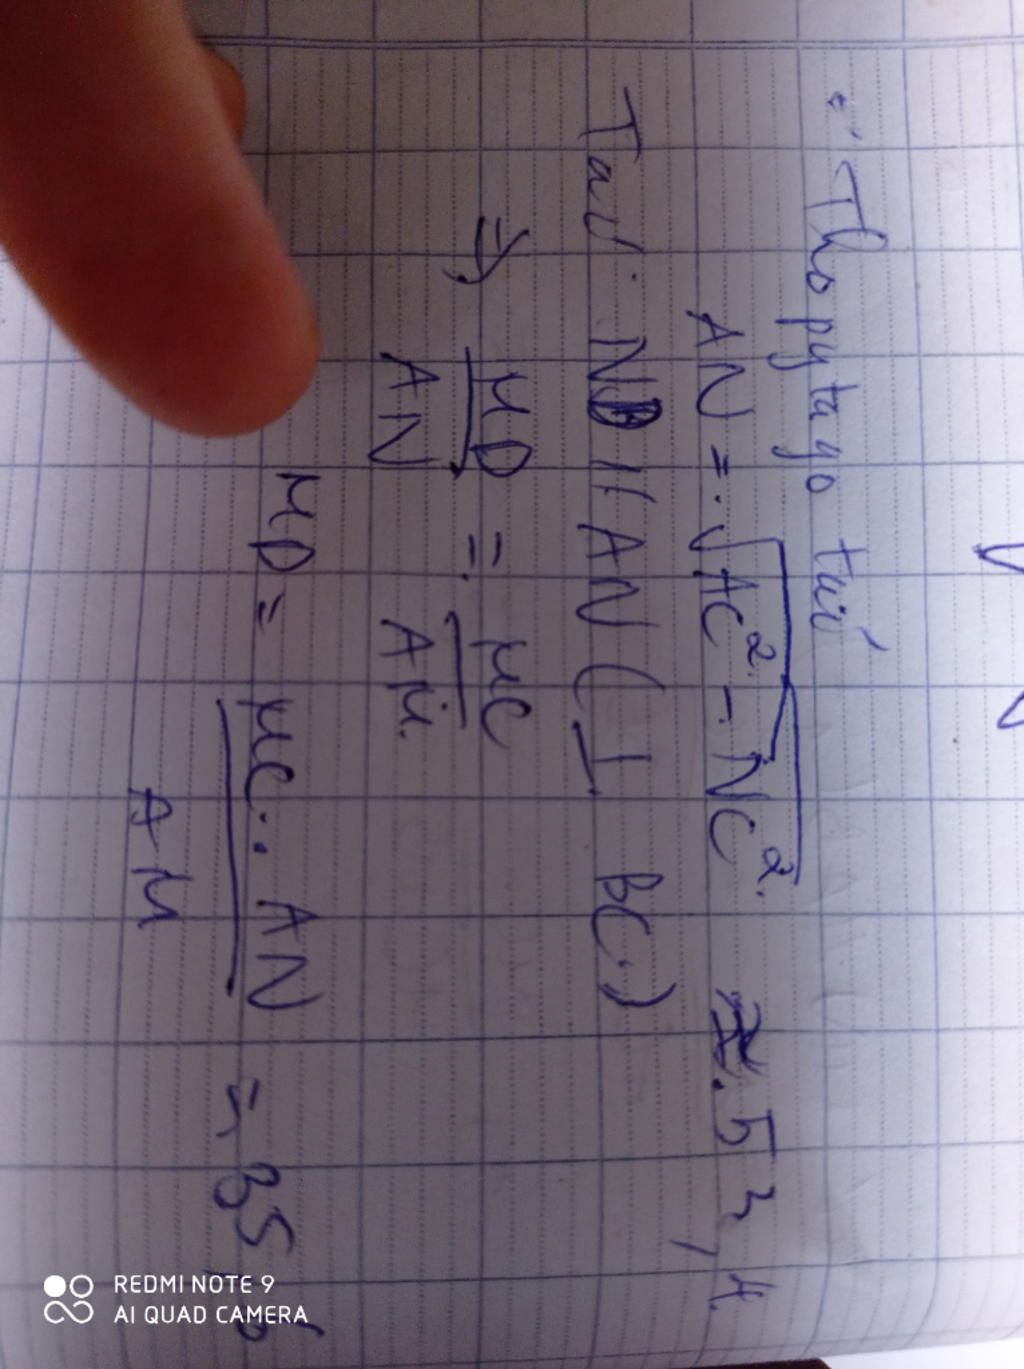 Tho pytago tai
AN = √AC² - NC² ≈ 53,4
Tai ND // AN (⊥ BC)
=> MD/AN = MC/AM
MD = MC . AN/AM = 35,6
REDMI NOTE 9
AI QUAD CAMERA